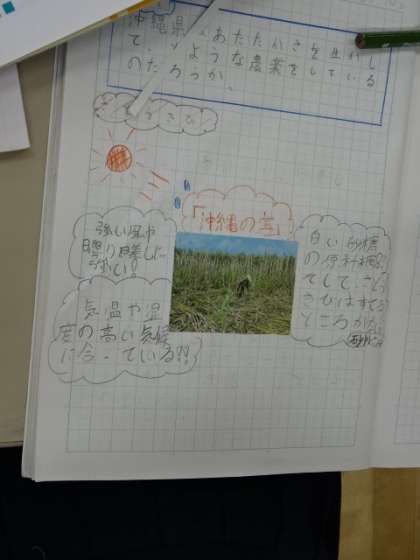 沖縄県 あたたかさを生かし
て、 ような農業をしている
のだろうか。
さとうきび
「沖縄の宝」
強い風や
照り
強い！
気温や湿
度の高い気候
に合っている!!
白い砂糖
の原料
として、
きびはすてる
ところがない